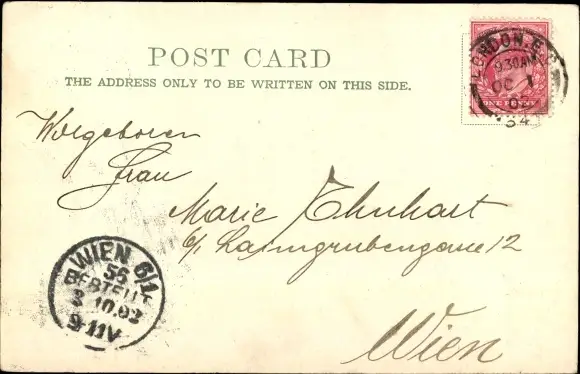 POST CARD
THE ADDRESS ONLY TO BE WRITTEN ON THIS SIDE.
LONDON. E.C.
9.30AM
OC 1
02
54
ONE PENNY
Wolgeboren
Frau
Marie Ehnhart
6/1 Laimgrubengasse 12
Wien
WIEN 6/1
56
BESTELLT
3 10.02
9-11V